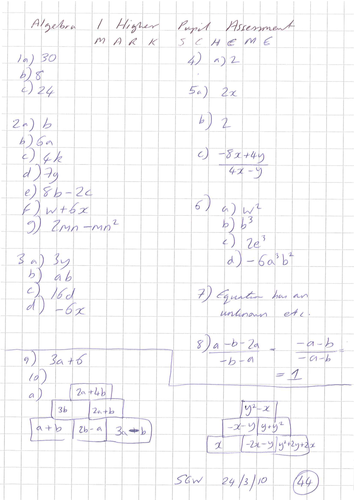 Algebra 1 Higher Pupil Assessment
MARK SCHEME
1a) 30
b) 8
c) 24
2a) b
b) 6a
c) 4k
d) 7g
e) 8b-2c
f) w+6x
g) 2mn-mn²
3 a) 3y
b) ab
c) 16d
d) -6x
4) a) 2
5a) 2x
b) 2
c) -8x+4y
4x-y
6) a) w²
b) b³
c) 2e³
d) -6a³b²
7) Equation has an
unknown etc.
8) a-b-2a = -a-b
-b-a -a-b
= 1
9) 3a+6
10)
a) 2a+4b
3b 2a+b
a+b 2b-a 3a-b
y²-x
-x-y y+y²
x -2x-y y²+2y+2x
SGW 24/3/10 44